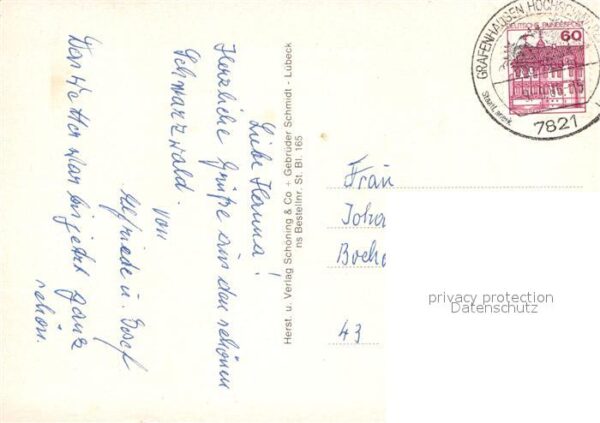 Liebe Hanna!
Herzliche Grüße aus den schönen
Schwarzwald.
von
Elfriede u. Josef
Das Wetter war bis jetzt ganz
schön.
Herst. u. Verlag Schöning & Co + Gebrüder Schmidt - Lübeck
ns Bestellnr. St. Bl. 165
GRAFENHAUSEN, HOCHSCHW
DEUTSCHE BUNDESPOST
60
7821
Frau
Joha
Boche
43
privacy protection
Datenschutz